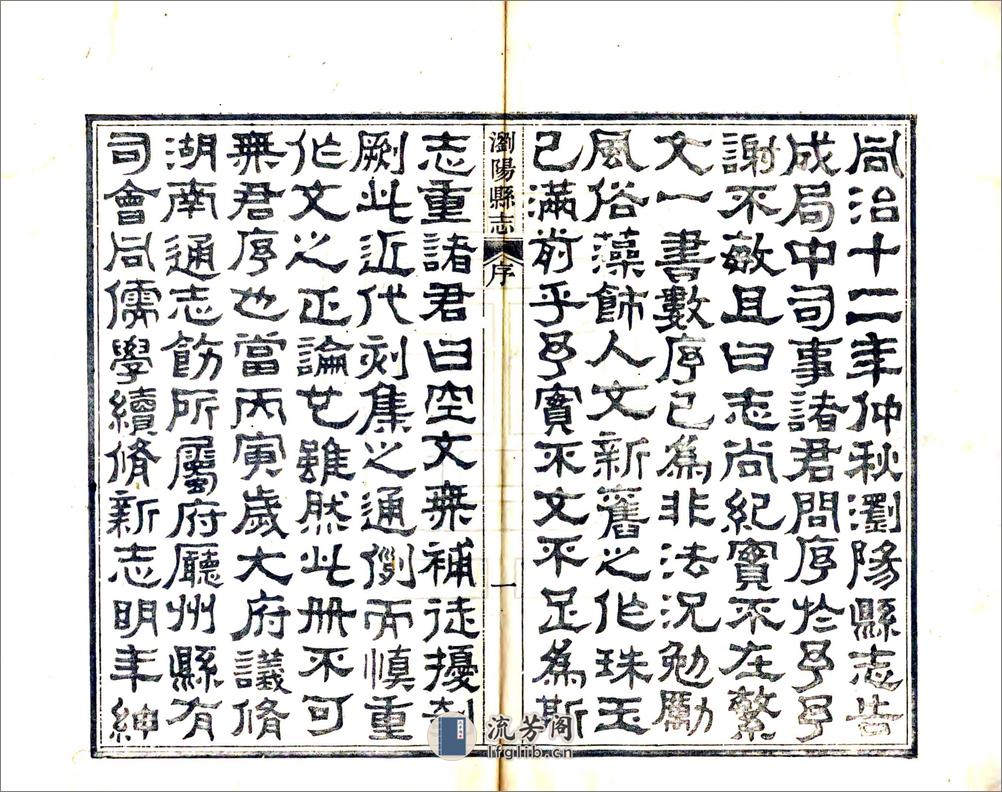 同治十二年仲秋瀏陽縣志告
成局中司事諸君問序於予予
謝不敏且曰志尚紀實不在繁
文一書數序已為非法況勉勵
風俗藻飾人文新舊之作珠玉
已滿前乎予實不文不足為斯
瀏陽縣志 序 一
志重諸君曰空文無補徒擾剞
劂此近代刻集之通例而慎重
作文之正論也雖然此冊不可
無君序也當丙寅歲大府議脩
湖南通志飭所屬府廳州縣有
司會同儒學續脩新志明年紳
流芳阁
lfglib.cn